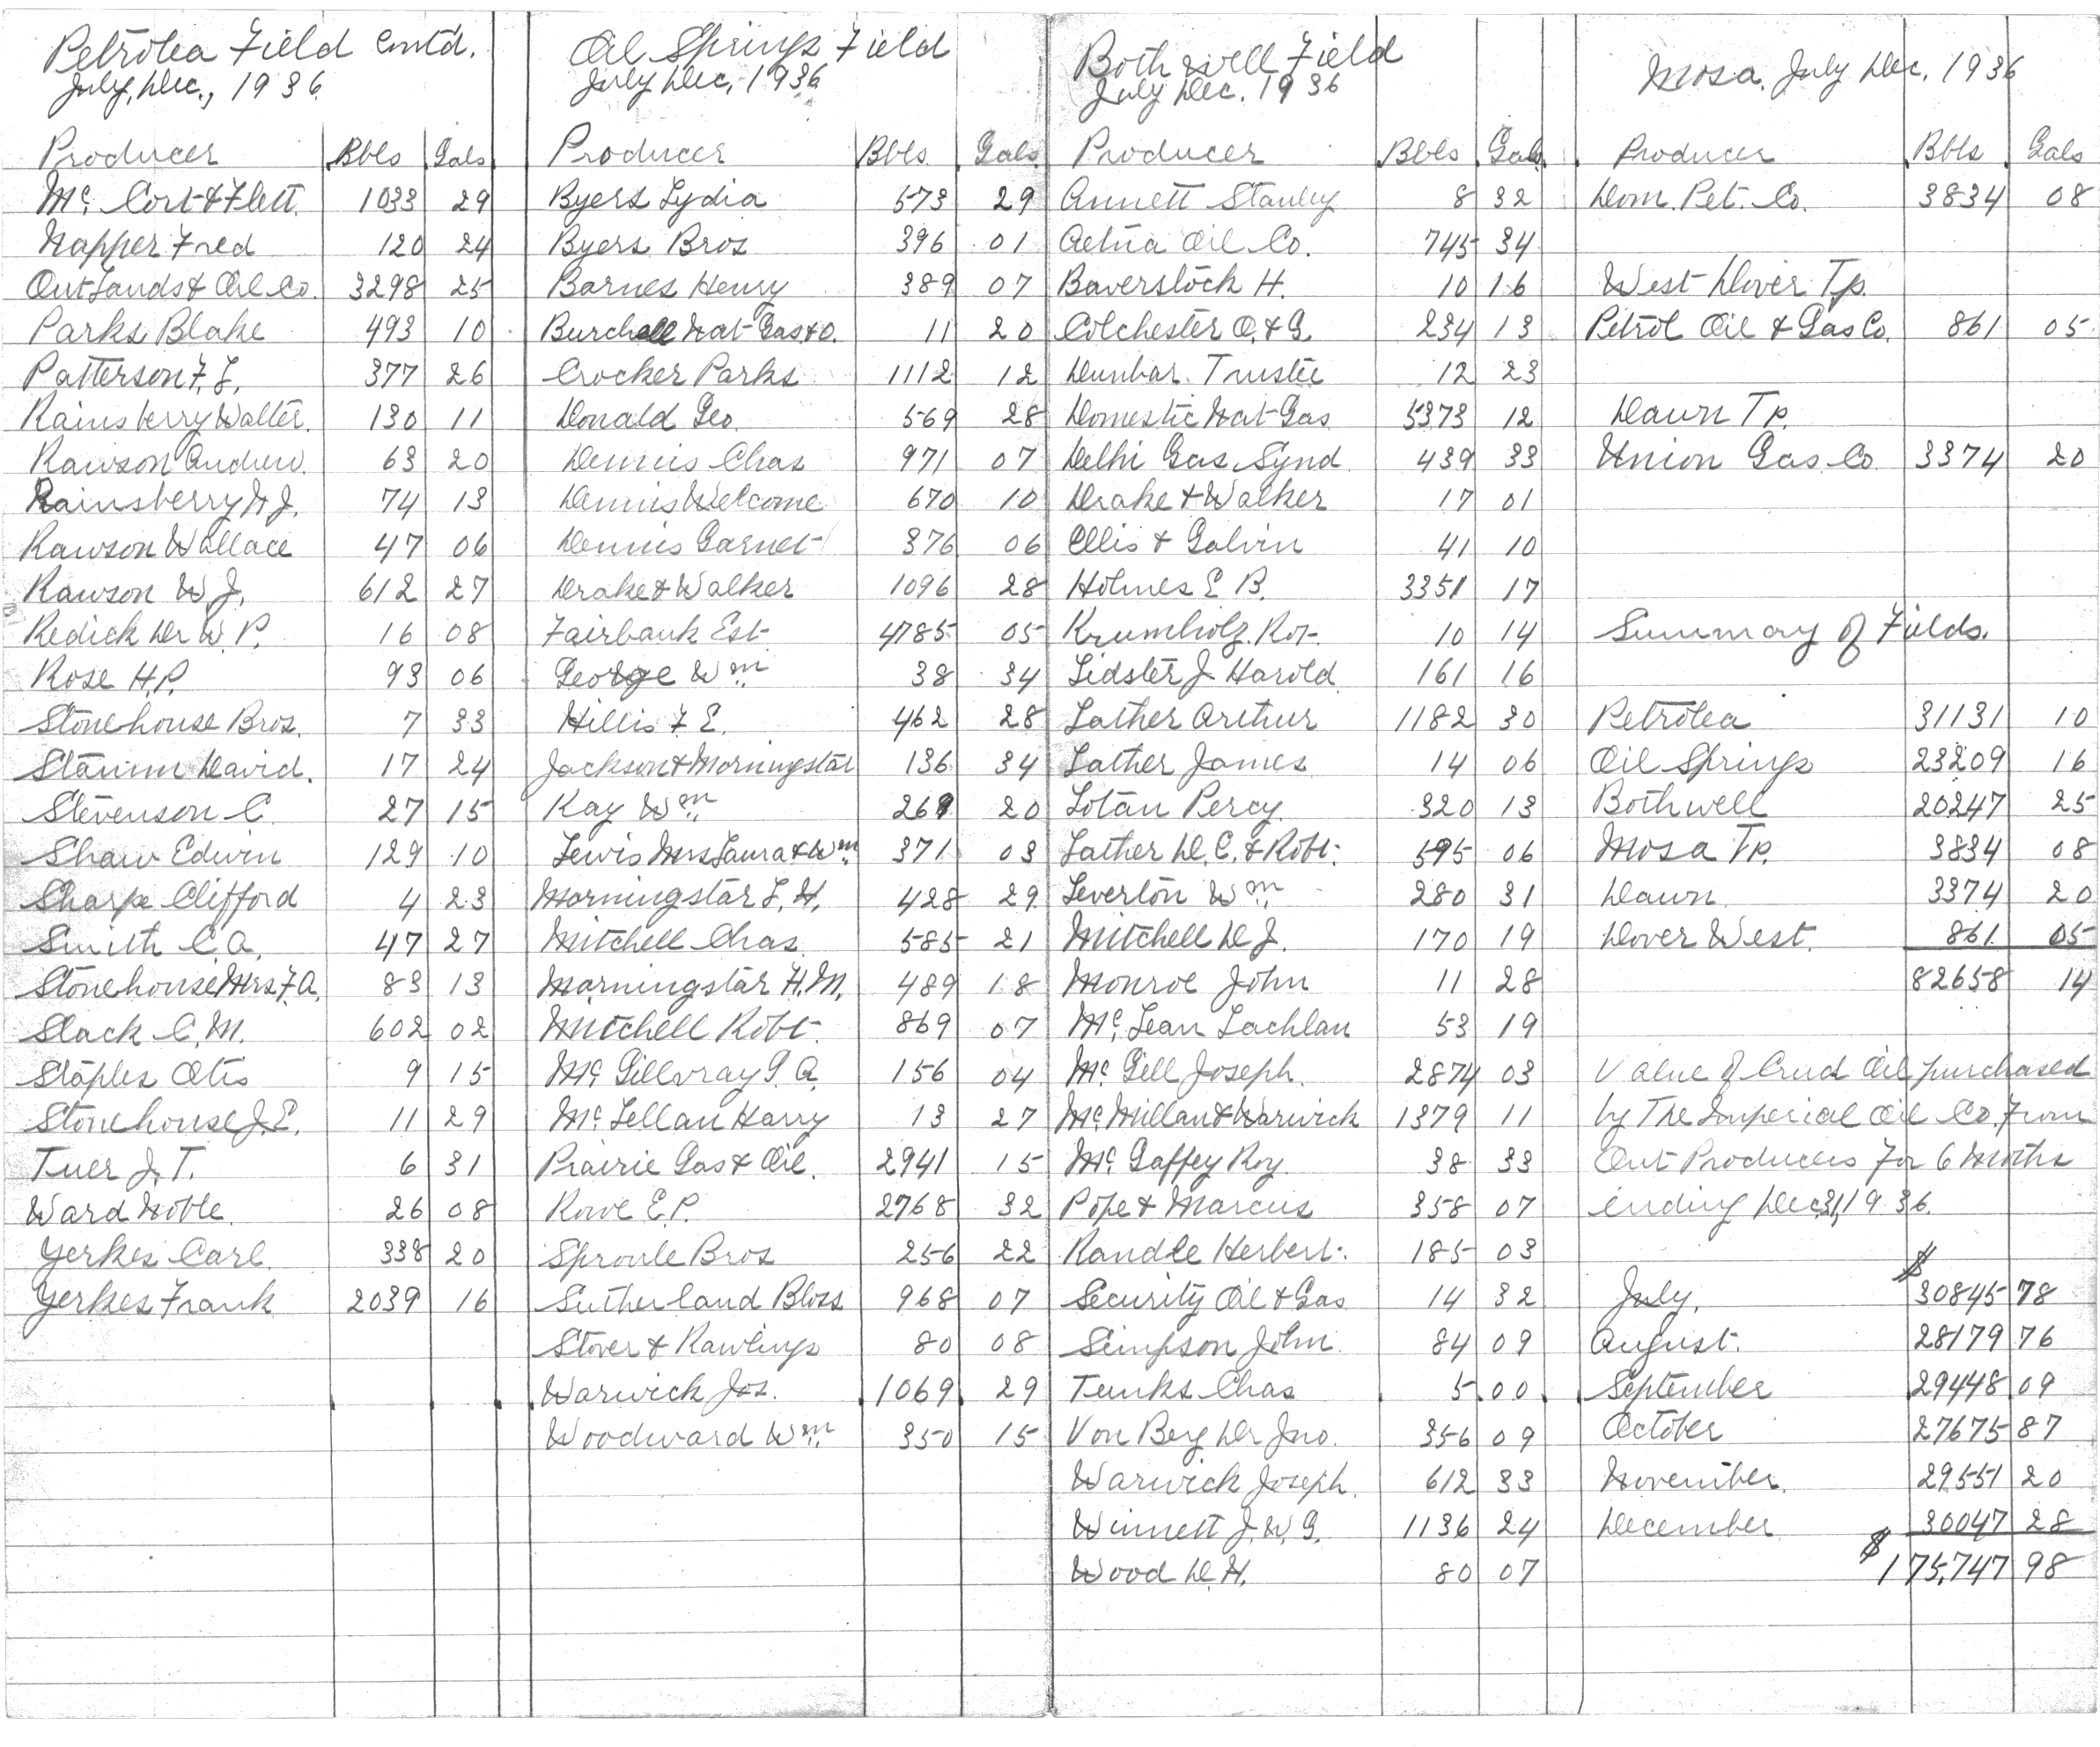 Petrolea Field Contd.
July, Dec., 1936.
Producer Bbls Gals
Mc. Cort & Flett. 1033 29
Napper Fred 120 24
Ont Lands & Oil Co. 3298 25
Parks Blake 493 10
Patterson F. L. 377 26
Rainsberry Walter. 130 11
Rawson Andrew. 63 20
Rainsberry N J. 74 13
Rawson Wallace 47 06
Rawson W. J. 612 27
Redick Dr W. P. 16 08
Rose H.P. 93 06
Stonehouse Bros. 7 33
Stamm David. 17 24
Stevenson C. 27 15
Shaw Edwin 129 10
Sharpe Clifford 4 23
Smith C. A. 47 27
Stonehouse Mrs F. A. 83 13
Slack C. M. 602 02
Staples Otis 9 15
Stonehouse J. E. 11 29
Tuer J. T. 6 31
Ward Noble. 26 08
Yerkes Carl. 338 20
Yerkes Frank 2039 16
Oil Springs Field
July Dec, 1936
Producer Bbls. Gals.
Byers Lydia 573 29
Byers Bros 396 01
Barnes Henry 389 07
Burchell Nat Gas & O. 11 20
Crocker Parks 1112 12
Donald Geo. 569 28
Dennis Chas 971 07
Dennis Welcome 670 10
Dennis Garnet 376 06
Drake & Walker 1096 28
Fairbank Est. 4785 05
George Wm 38 34
Hillis F E. 462 28
Jackson & Morningstar 136 34
Kay Wm 20
Lewis Mrs Laura & Wm. 371 03
Morningstar L. H. 428 29
Mitchell Chas. 585 21
Morningstar H. M. 489 18
Mitchell Robt. 869 07
Mc Gillvray G. A. 156 04
Mc. Lellan Harry 13 27
Prairie Gas & Oil. 2941 15
Rowe E. P. 2768 32
Sproule Bros 256 22
Sutherland Bloss 968 07
Stover & Rawlings 80 08
Warwick Jos. 1069 29
Woodward Wm 350 15
Bothwell Field
July Dec. 1936
Producer Bbls Gals.
Annett Stanley 8 32
Aetna Oil Co. 745 34
Baverstock H. 10 16
Colchester O. & G. 234 13
Dunbar. Trustee 12 23
Domestic Nat Gas 5373 12
Delhi Gas Synd. 439 33
Drake & Walker 17 01
Ellis & Galvin 41 10
Holmes E B. 3351 17
Krumholz Roy. 10 14
Lidster J Harold 161 16
Lather Arthur 1182 30
Lather James 14 06
Lotan Percy 320 13
Lather D. C. & Robt. 595 06
Leverton Wm 280 31
Mitchell D J. 170 19
Monroe John 11 28
Mc. Lean Lachlan 53 19
Mc. Gill Joseph. 2874 03
Mc. Millan & Warwick 1379 11
Mc. Gaffey Roy. 38 33
Pope & Marcus 358 07
Randle Herbert. 185 03
Security Oil & Gas 14 32
Simpson John 84 09
Tunks Chas 5 00
Von Berg Dr Jno. 356 09
Warwick Joseph. 612 33
Winnett J. W. G. 1136 24
Wood D. H. 80 07
Mosa. July Dec. 1936
Producer Bbls Gals
Dom. Pet. Co. 3834 08
West Dover Tp.
Petrol Oil & Gas Co. 861 05
Dawn Tp.
Union Gas Co 3374 20
Summary of Fields.
Petrolea 31131 10
Oil Springs 23209 16
Bothwell 20247 25
Mosa Tp. 3834 08
Dawn. 3374 20
Dover West. 861 05
82658 14
Value of Crud Oil purchased
by The Imperial Oil Co. From
Ont Producers For 6 Months
ending Dec 31, 1936.
$
July. 30845 78
August. 28179 76
September 29448 09
October 27675 87
November. 29551 20
December 30047 28
$175,747 98